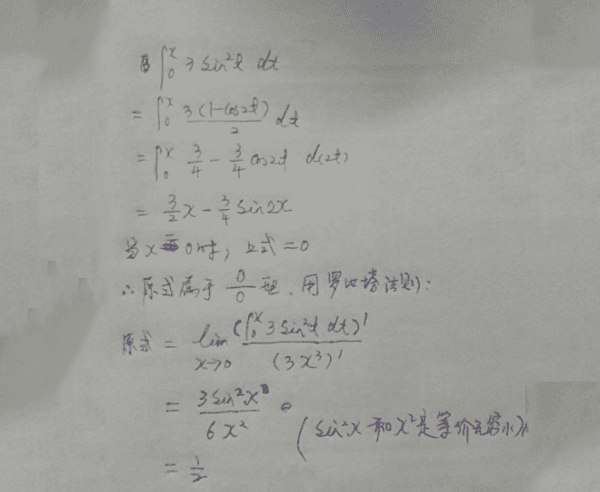 ∫₀ˣ 3 sin²t dt
= ∫₀ˣ 3(1-cos2t)/2 dt
= ∫₀ˣ 3/4 - 3/4 cos2t d(2t)
= 3/2 x - 3/4 sin2x
当x=0时，上式=0
∴原式属于 0/0 型，用罗比塔法则：
原式 = lim x→0 (∫₀ˣ 3 sin²t dt)' / (3x³)'
= 3 sin²x / 6x²
(sin²x 和 x² 是等价无穷小)
= 1/2